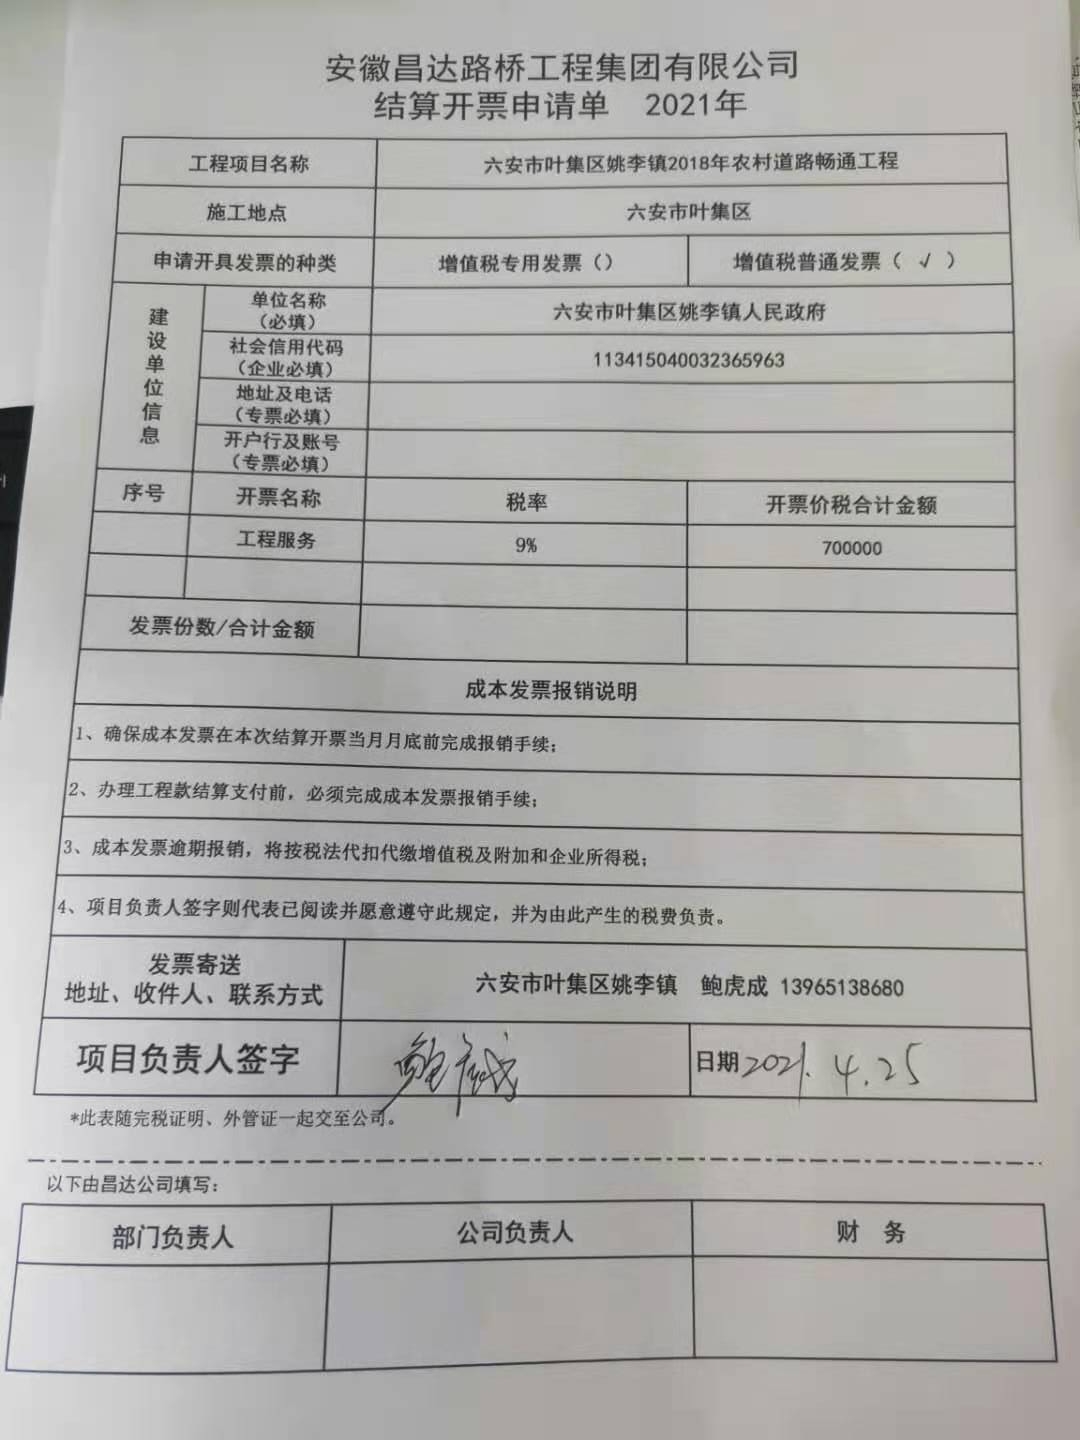 安徽昌达路桥工程集团有限公司
结算开票申请单 2021年
工程项目名称 六安市叶集区姚李镇2018年农村道路畅通工程
施工地点 六安市叶集区
申请开具发票的种类 增值税专用发票（） 增值税普通发票（ √ ）
建设单位信息
单位名称
（必填）
六安市叶集区姚李镇人民政府
社会信用代码
（企业必填）
113415040032365963
地址及电话
（专票必填）
开户行及账号
（专票必填）
序号 开票名称 税率 开票价税合计金额
工程服务 9% 700000
发票份数/合计金额
成本发票报销说明
1、确保成本发票在本次结算开票当月月底前完成报销手续；
2、办理工程款结算支付前，必须完成成本发票报销手续；
3、成本发票逾期报销，将按税法代扣代缴增值税及附加和企业所得税；
4、项目负责人签字则代表已阅读并愿意遵守此规定，并为由此产生的税费负责。
发票寄送
地址、收件人、联系方式
六安市叶集区姚李镇 鲍虎成 13965138680
项目负责人签字 鲍虎成 日期2021.4.25
*此表随完税证明、外管证一起交至公司。
以下由昌达公司填写：
部门负责人 公司负责人 财 务